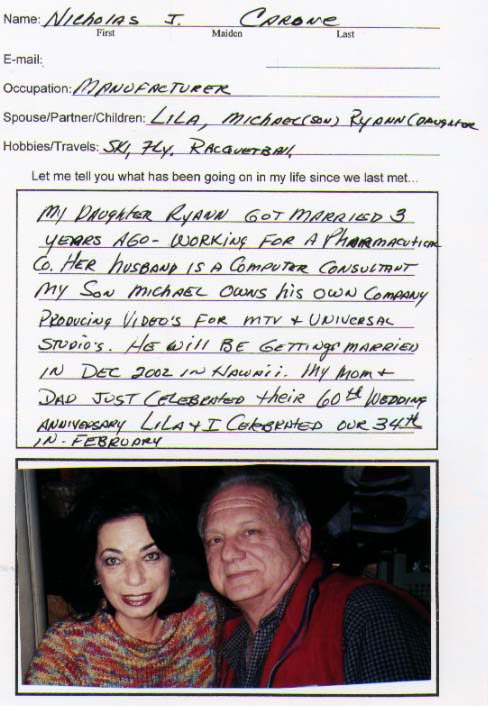 Name: Nicholas J. Carone
First Maiden Last
E-mail:
Occupation: Manufacturer
Spouse/Partner/Children: Lila, Michael (son) Ryann (Daughter
Hobbies/Travels: Ski, Fly, Racquetball
Let me tell you what has been going on in my life since we last met...
My Daughter Ryann got married 3
years ago - working for a Pharmacutical
Co. Her husband is a Computer Consultant
My Son Michael owns his own Company
Producing Video's for MTV + Universal
Studio's. He will be gettings married
in Dec 2002 in Hawaii. My Mom +
Dad just celebrated their 60th Wedding
Anniversary Lila + I Celebrated our 34th
in - February